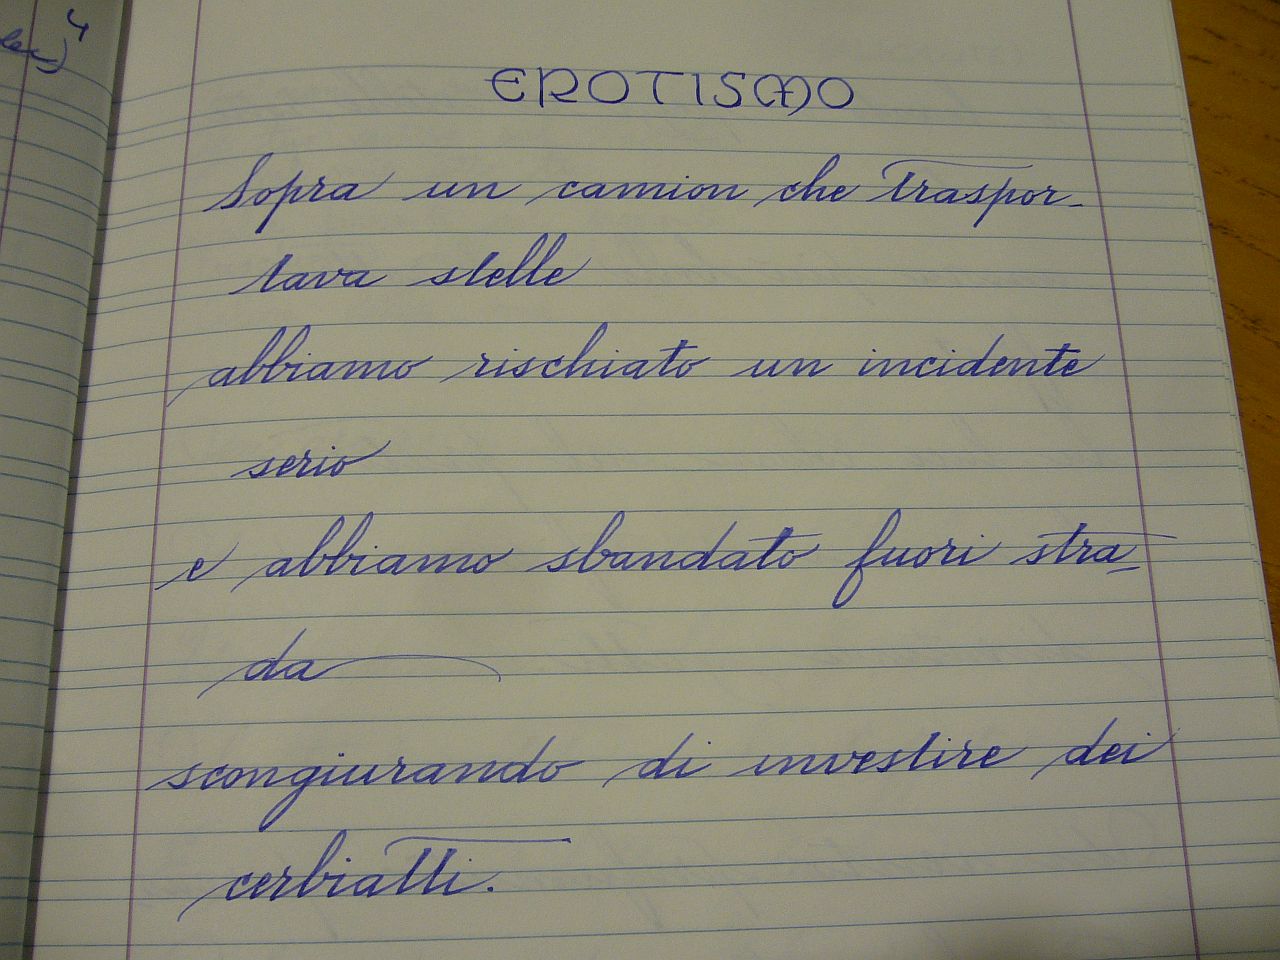 EROTISMO
Sopra un camion che traspor-
tava stelle
abbiamo rischiato un incidente
serio
e abbiamo sbandato fuori stra-
da
scongiurando di investire dei
cerbiatti.